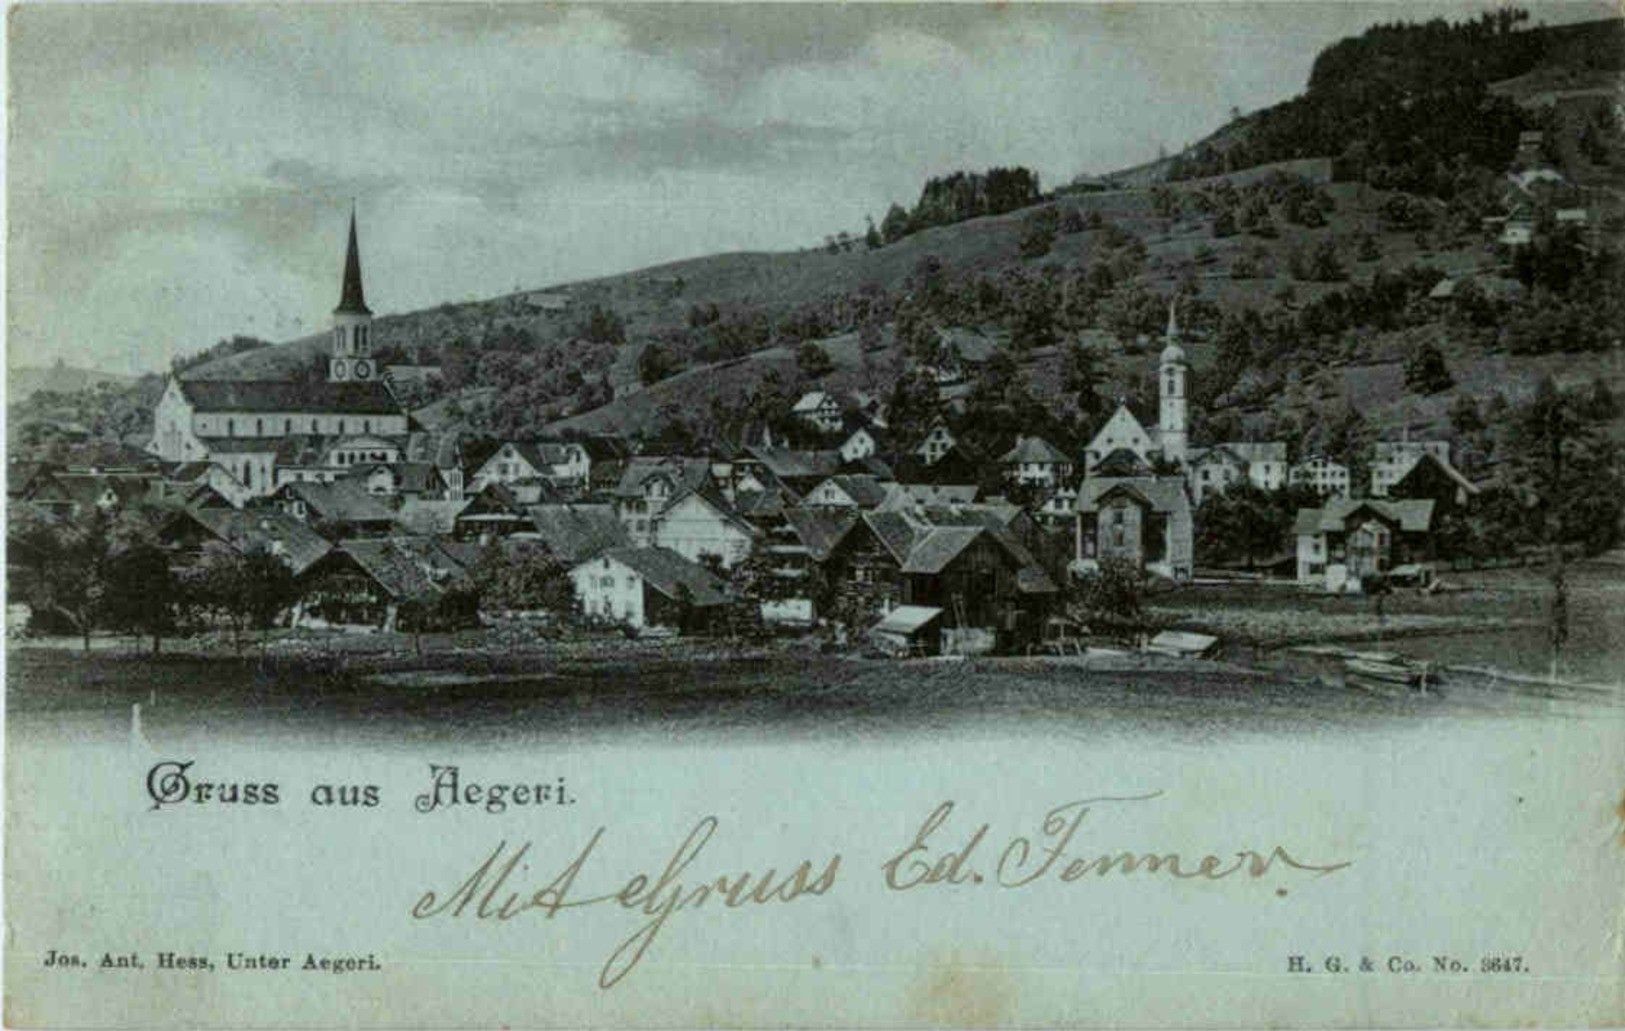 Gruss aus Aegeri.
Mit Gruss Ed. Tenner.
Jos. Ant. Hess, Unter Aegeri.
H. G. & Co. No. 3647.